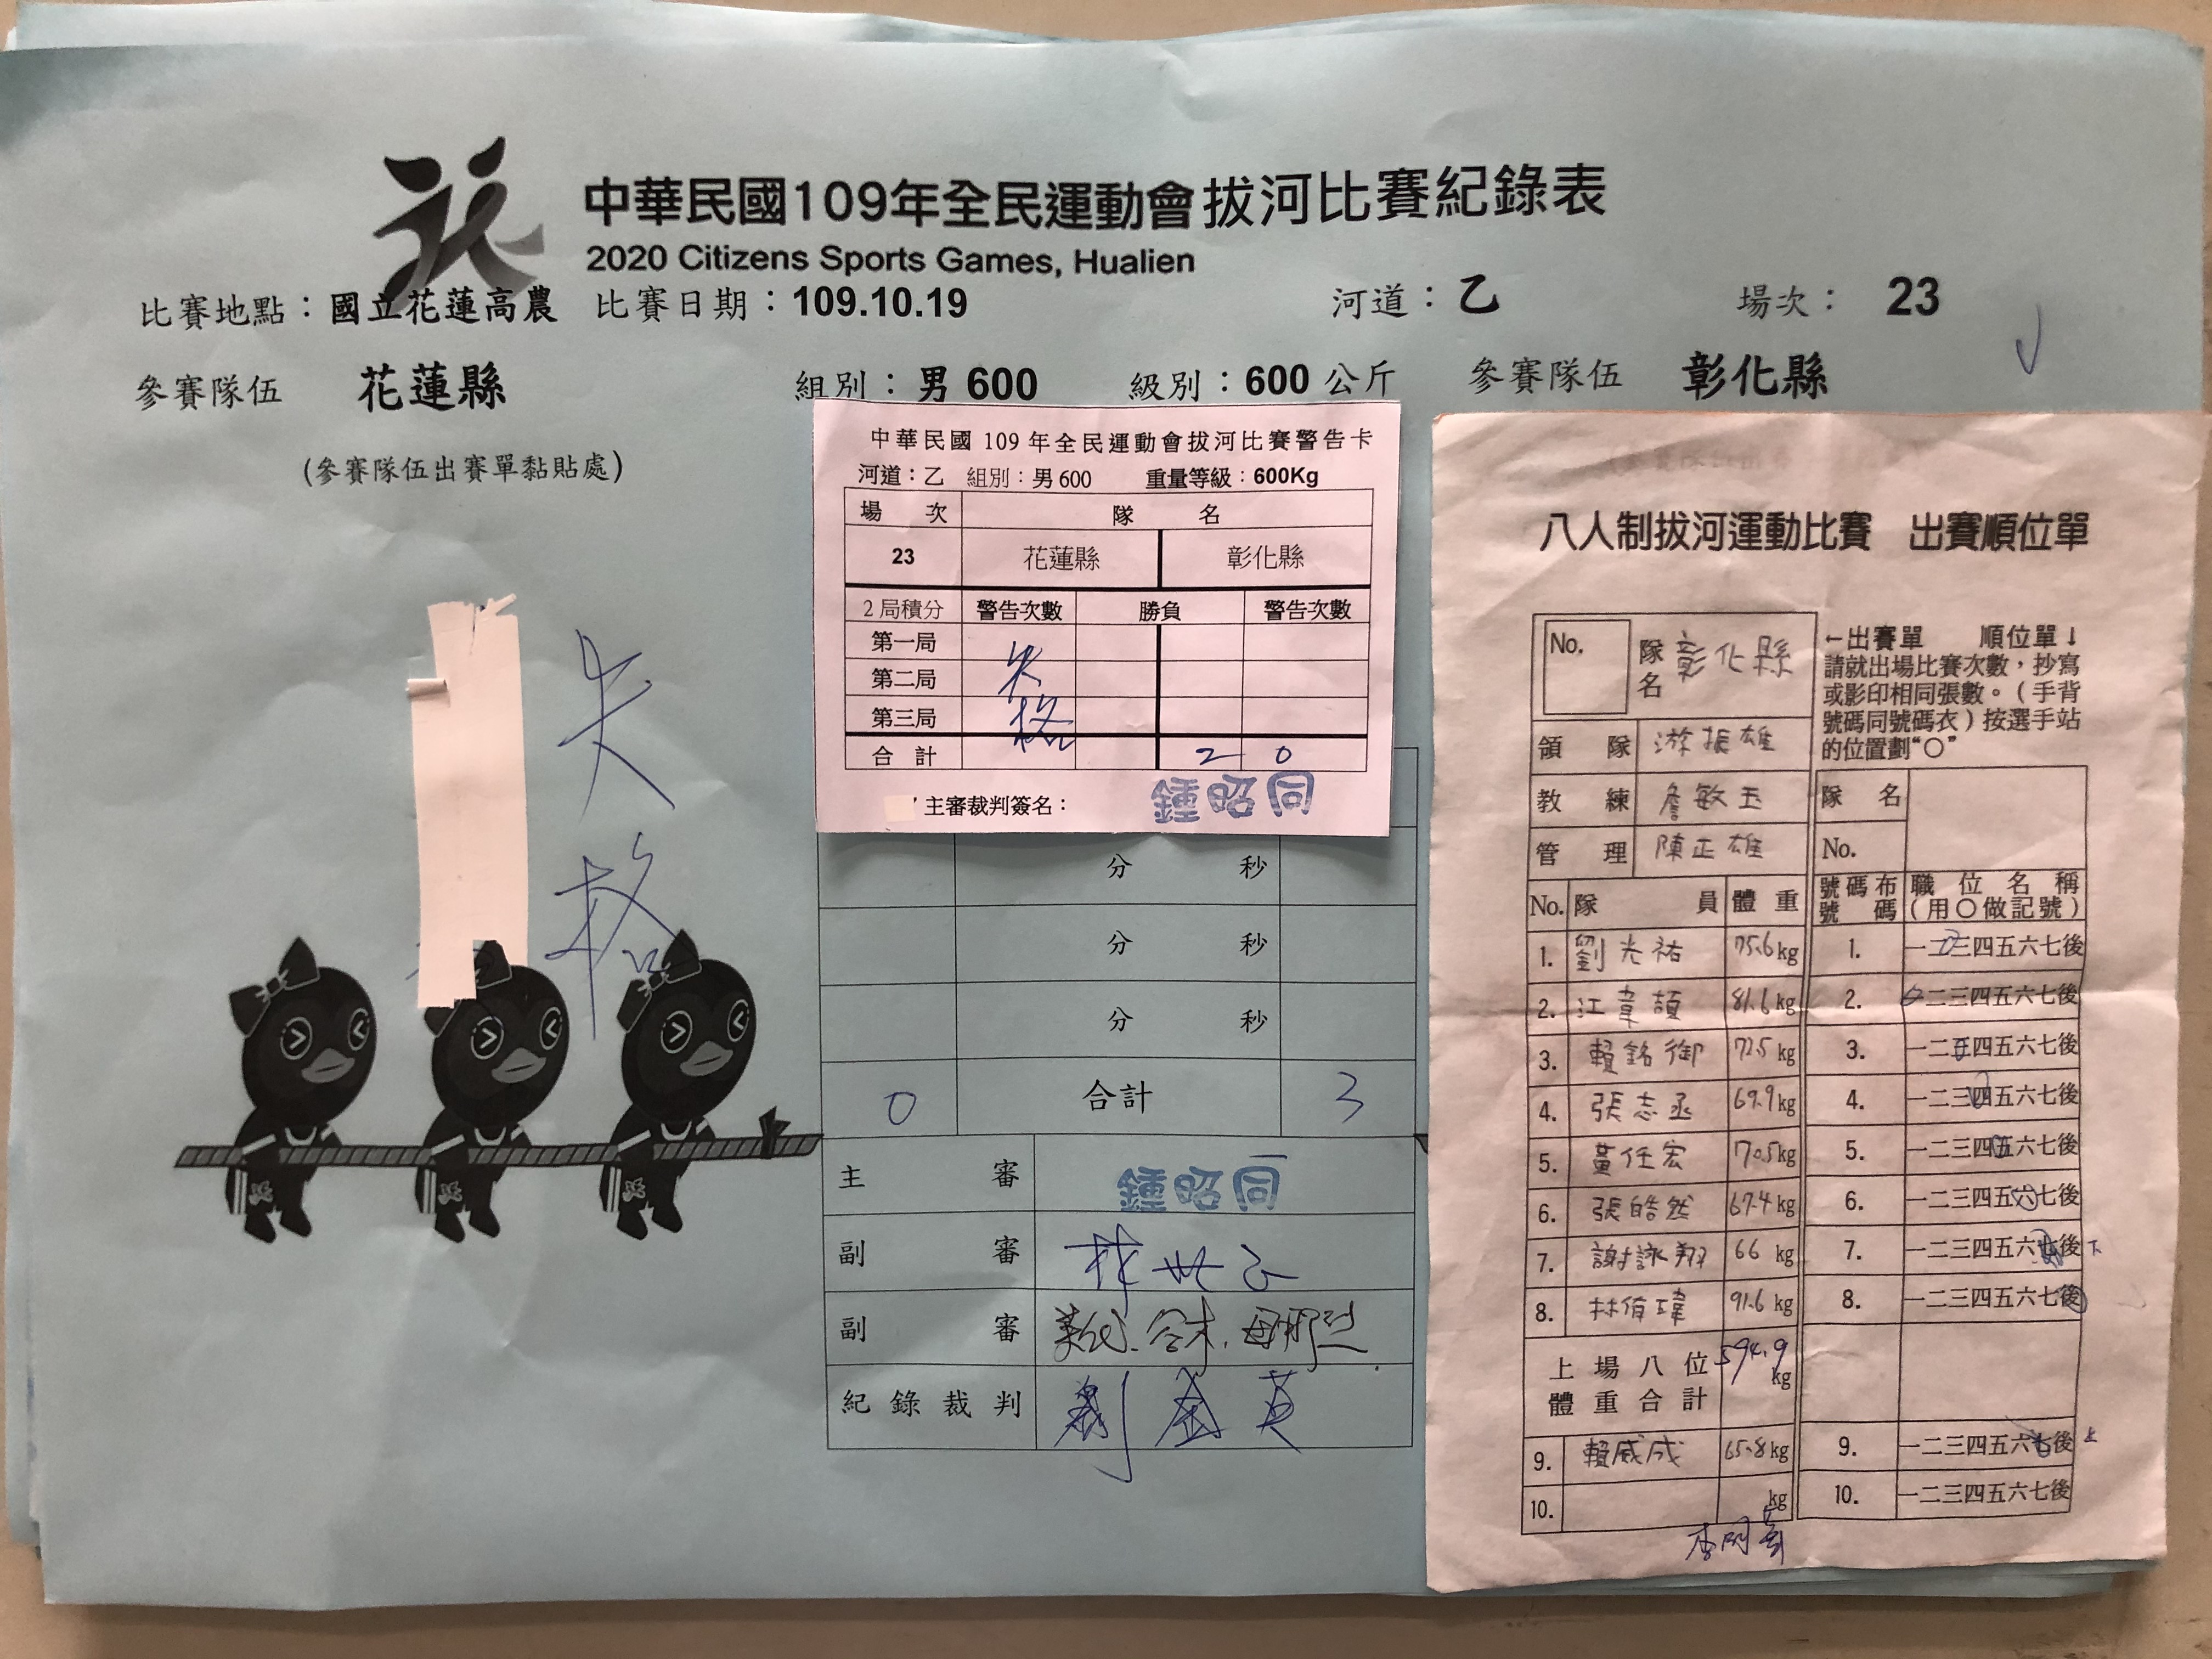 中華民國109年全民運動會拔河比賽紀錄表
2020 Citizens Sports Games, Hualien
比賽地點：國立花蓮高農 比賽日期：109.10.19 河道：乙 場次： 23
參賽隊伍 花蓮縣 組別：男 600 級別：600 公斤 參賽隊伍 彰化縣
(參賽隊伍出賽單黏貼處)
失格
中華民國 109 年全民運動會拔河比賽警告卡
河道：乙 組別：男 600 重量等級：600Kg
場次 隊名
23 花蓮縣 彰化縣
2 局積分 警告次數 勝負 警告次數
第一局
第二局
第三局
失格
合計 2 0
主審裁判簽名： 鍾昭同
分 秒
分 秒
分 秒
0 合計 3
主審 鍾昭同
副審
副審
紀錄裁判 劉金英
八人制拔河運動比賽 出賽順位單
No. 隊名 彰化縣
←出賽單 順位單↓
請就出場比賽次數，抄寫
或影印相同張數。（手背
號碼同號碼衣）按選手站
的位置劃“○”
領隊 游振雄
教練 詹敏玉
管理 陳正雄
隊名
No.
No. 隊員 體重 號碼布號碼 職位名稱（用○做記號）
1. 劉光祐 75.6 kg 1. 一二三四五六七後
2. 江韋頡 81.6 kg 2. 一二三四五六七後
3. 賴銘御 72.5 kg 3. 一二三四五六七後
4. 張志丞 69.9 kg 4. 一二三四五六七後
5. 黃任宏 70.5 kg 5. 一二三四五六七後
6. 張皓然 67.4 kg 6. 一二三四五六七後
7. 謝詠翔 66 kg 7. 一二三四五六七後 下
8. 林侑瑋 91.6 kg 8. 一二三四五六七後
上場八位體重合計 594.9 kg
9. 賴威成 65.8 kg 9. 一二三四五六七後 上
10. kg 10. 一二三四五六七後